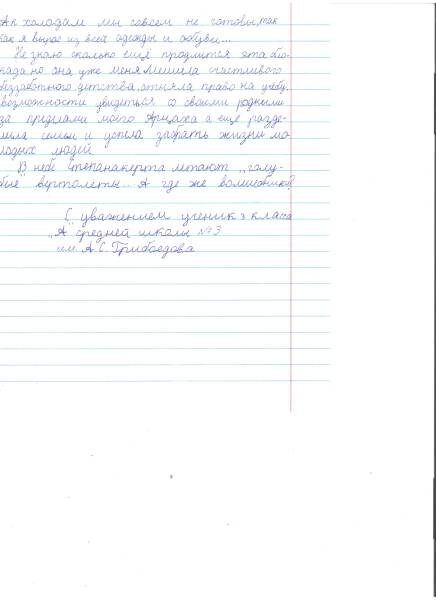 А к холодам мы совсем не готовы, так
как я вырос из всей одежды и обуви...
Не знаю сколько ещё продлится эта бло-
када, но она уже меня лишила счастливого
беззаботного детства, отняла право на учёбу,
возможности увидеться со своими родными
за пределами моего Арцаха а ещё разде-
лила семьи и успела забрать жизни мо-
лодых людей
В небе Степанакерта летают „голу-
бые" вертолёты... А где же волшебники?
С уважением ученик 3 класса
„А" средней школы №3
им. А.С. Грибоедова